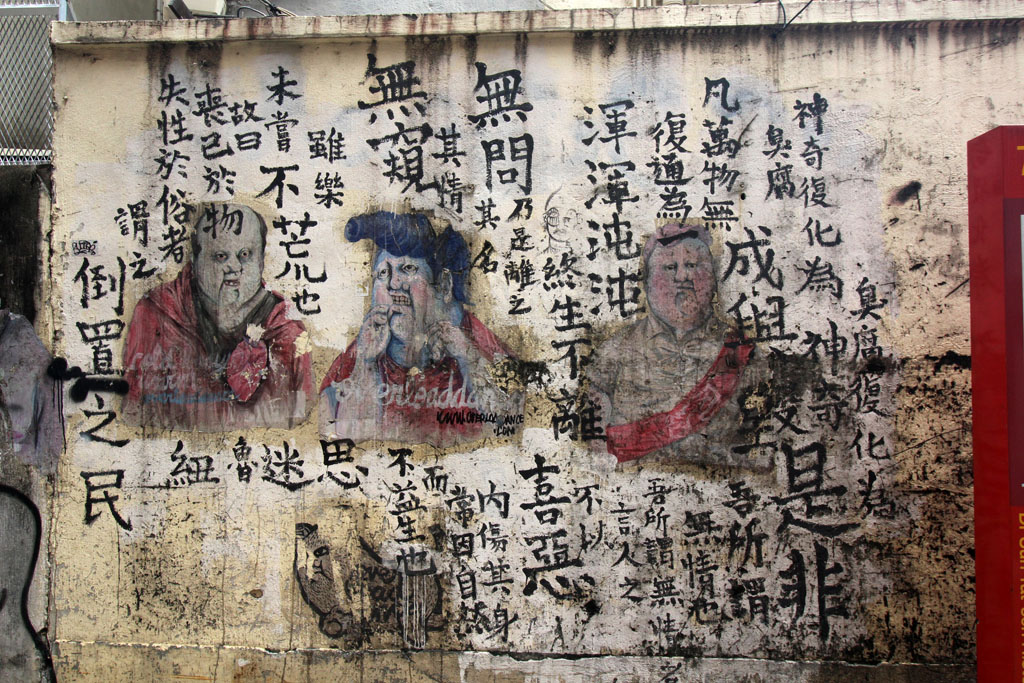 臭腐復化為
神奇
神奇復化為
臭腐
凡萬物無
成與毀
復通為一
渾渾沌沌
終生不離
乃是離之
無問其名
無窺其情
雖樂
未嘗不芒也
故曰
喪己於物
失性於俗者
謂之
倒置之民
是非
吾所謂
無情也
吾所謂無情者
言人之
不以
喜惡
內傷其身
常因自然
而
不益生也
思
迷
魯
紐